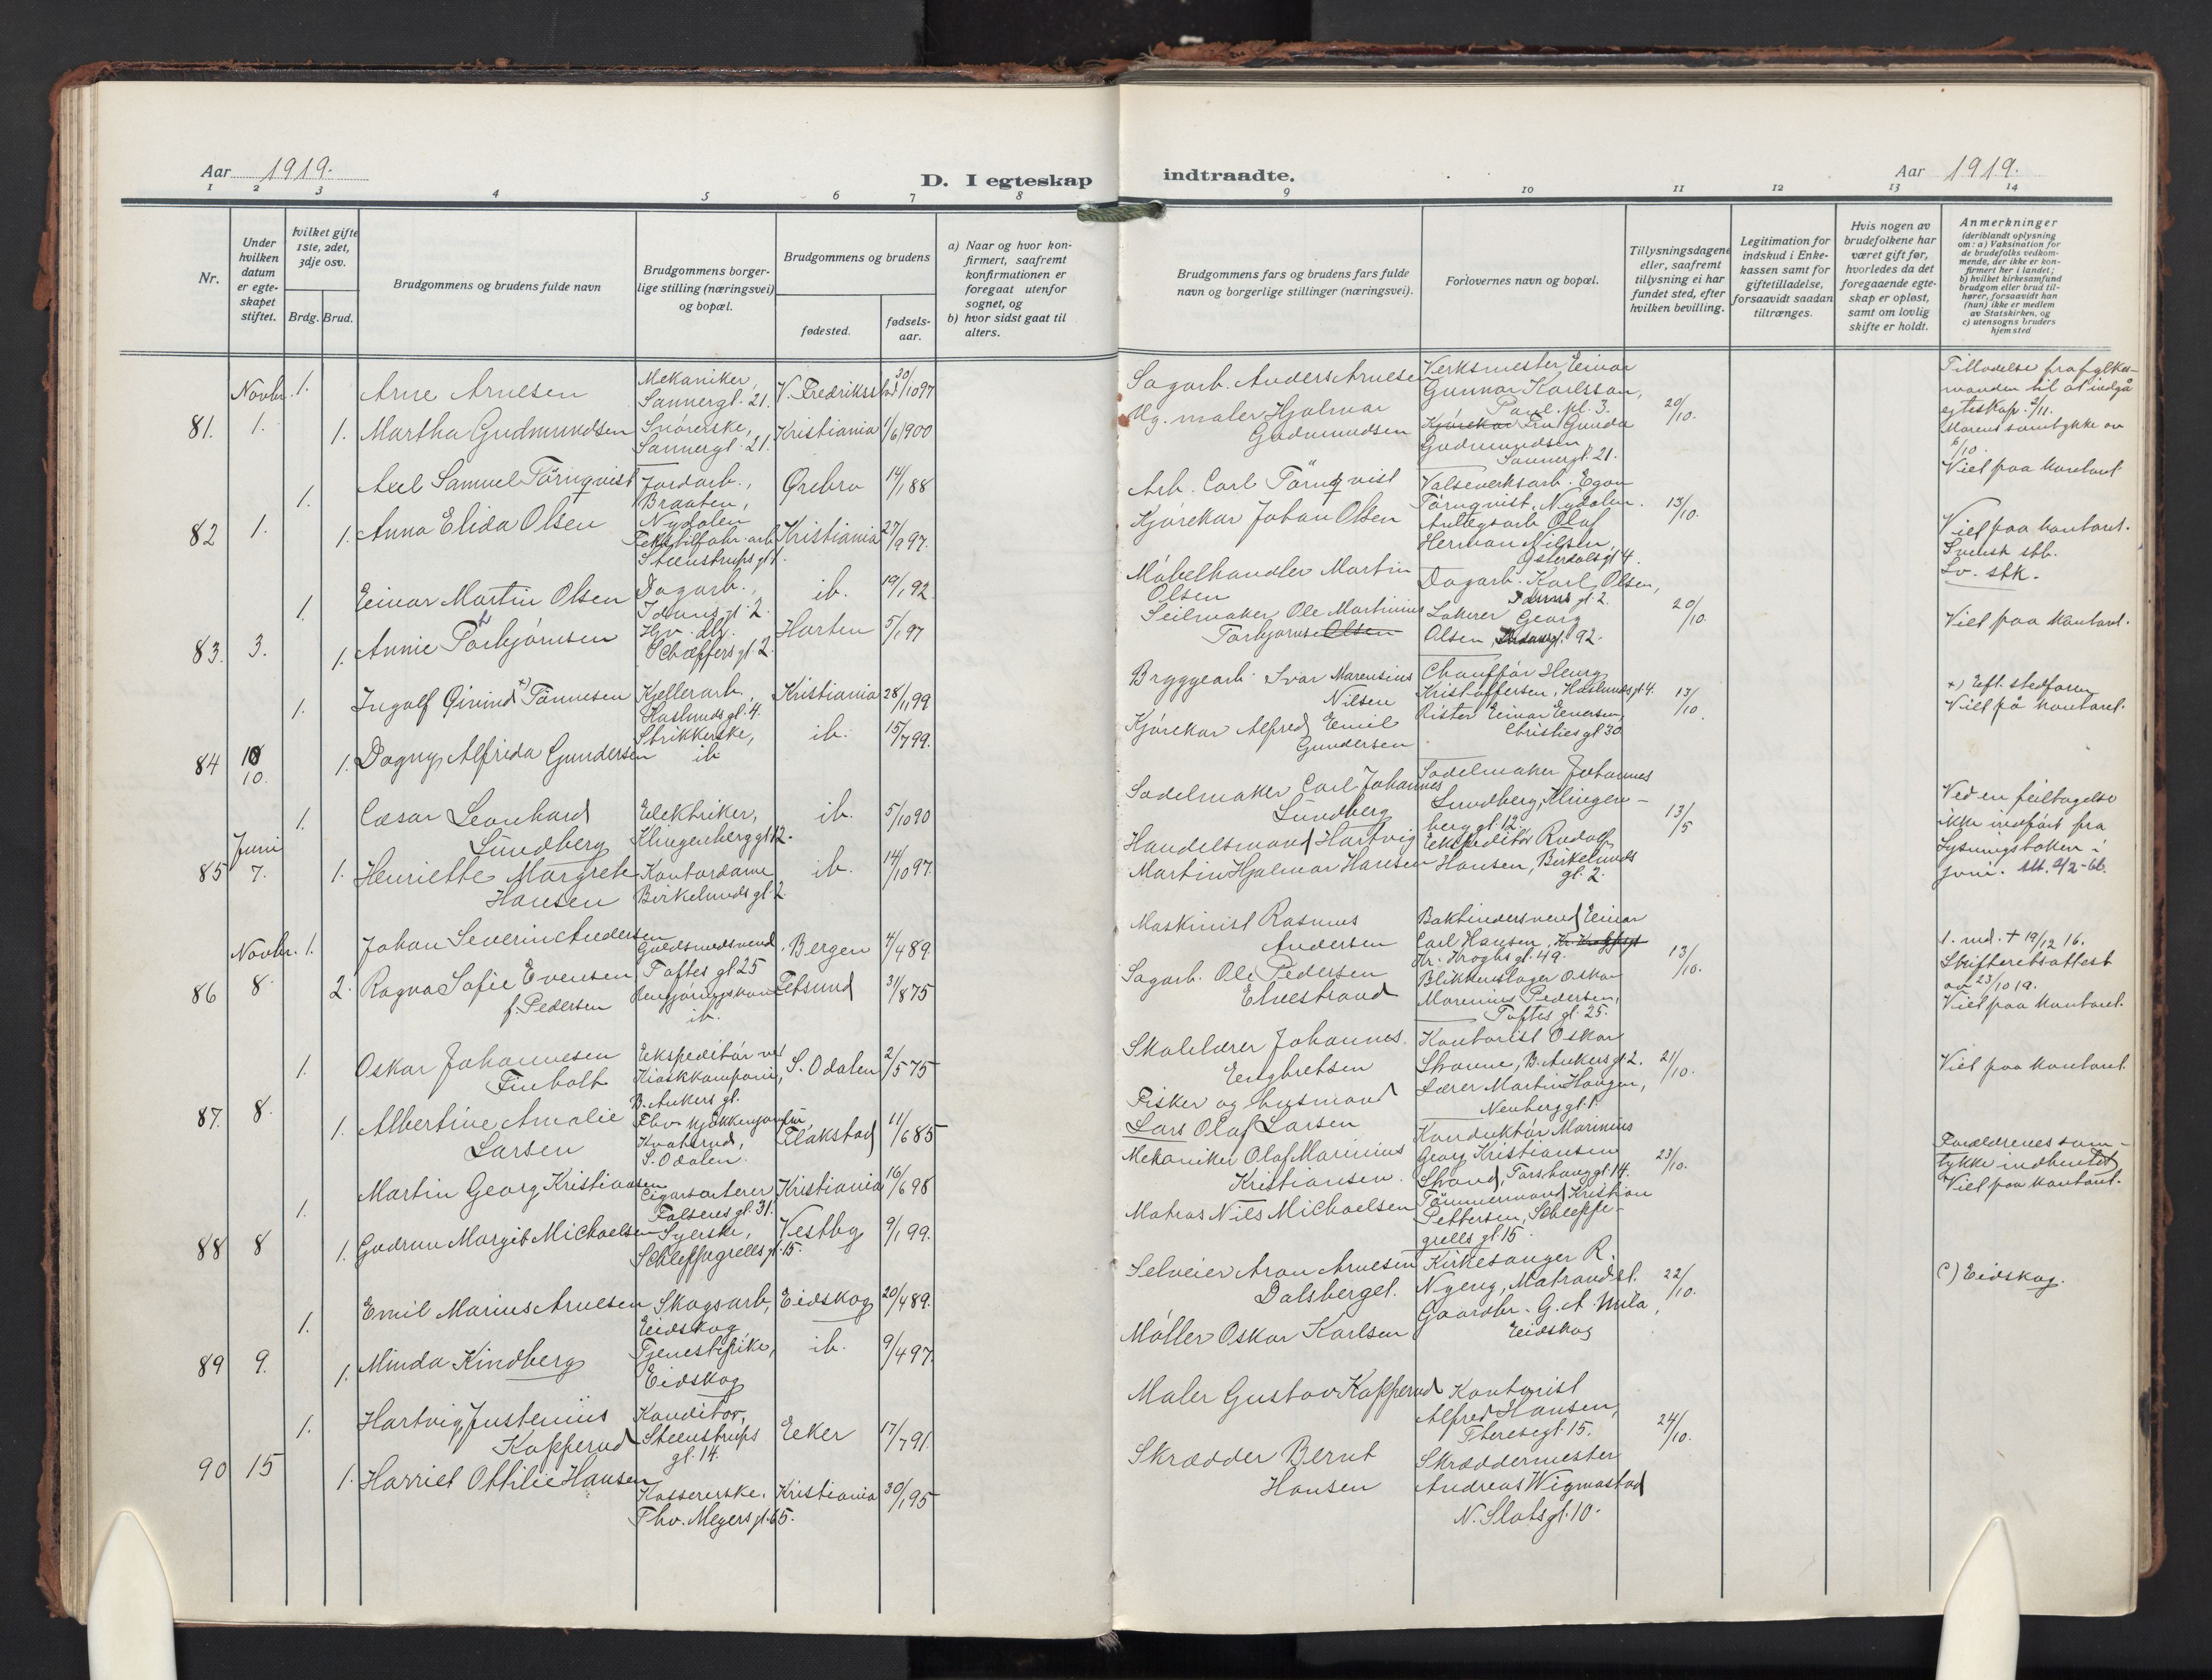 Aar 1919.
D. I egteskap
indtraadte.
Aar 1919.
1 2 3 4 5 6 7 8
9 10 11 12 13 14
Nr.
Under hvilken datum er egteskapet stiftet.
hvilket gifte 1ste, 2det, 3dje osv.
Brdg. Brud.
Brudgommens og brudens fulde navn
Brudgommens borgerlige stilling (næringsvei) og bopæl.
Brudgommens og brudens
fødested.
fødselsaar.
a) Naar og hvor konfirmert, saafremt konfirmationen er foregaat utenfor sognet, og
b) hvor sidst gaat til alters.
Brudgommens fars og brudens fars fulde navn og borgerlige stillinger (næringsvei).
Forlovernes navn og bopæl.
Tillysningsdagene eller, saafremt tillysning ei har fundet sted, efter hvilken bevilling.
Legitimation for indskud i Enkekassen samt for giftetilladelse, forsaavidt saadan tiltrænges.
Hvis nogen av brudefolkene har været gift før, hvorledes da det foregaaende egteskap er opløst, samt om lovlig skifte er holdt.
Anmerkninger
(deriblandt oplysning om: a) Vaksination for de brudefolks vedkommende, der ikke er konfirmert her i landet; b) hvilket kirkesamfund brudgom eller brud tilhører, forsaavidt han (hun) ikke er medlem av Statskirken, og c) utensogns bruders hjemsted
81. Novbr. 1.
1. Arne Arnesen
Mekaniker, Sannergt. 21.
V. Fredrikstad 30/10 97
1. Martha Gudmundsen
Snørerske, Sannergt. 21.
Kristiania 1/6 900
Sagarb. Anders Arnesen
Ug. maler Hjalmar Gudmundsen
Verksmester Einar Gunnar Karlsson, Paul. pl. 3.
Kjørekar Fru Gunda Gudmundsen, Sannergt. 21.
20/10.
Tilladelse fra fylkesmanden til at indgå egteskap
Morens samtykke av 6/10.
Viet paa kontoret
82 1.
1. Axel Samuel Törnqvist
Jordarb., Braaten, Nydalen
Ørebro 14/1 88
1. Anna Elida Olsen
Tekstilfabr. arb. Steenstrups gt 1.
Kristiania 27/9 97.
Arb. Carl Törnqvist
Kjørekar Johan Olsen
Valseverksarb. Egon Törnqvist, Nydalen.
Anlegsarb. Olaf Herman Nilsen, Østerdalsgt 4.
13/10.
Viet paa kontoret.
Svensk stb.
Sv. stk.
83. 3.
1. Einar Martin Olsen
Dagarb., Iduns gt. 2
ib. 19/1 92
1. Annie Torbjørnsen
Hgv. dtr. Schæffers gt. 2
Horten 5/1 97
Møbelhandler Martin Olsen
Seilmaker Ole Martinius Torbjørnse Olsen
Dagarb. Karl Olsen, Iduns gt. 2.
Lakerer Georg Olsen, 92.
20/10.
Viet paa kontoret.
84 10 10.
1. Ingolf Øivind x) Tönnesen
Kjellerarb., Haslunds gt. 4.
Kristiania 28/1 99
1. Dagny Alfrida Gundersen
Strikkerske, ib
ib. 15/7 99.
Bryggearb. Ivar Marensius Nilsen
Kjørekar Alfred Emil Gundersen
Chauffør Henry Kristoffersen, Haslunds gt 4.
Rister Einar Evensen, Christies gt 30
13/10.
x) Eft. stedfaren
Viet på kontoret.
85 Juni 7.
1. Cæsar Leonhard Lundberg
Elektriker, Klingenberg gt. 12.
ib. 5/10 90
1. Henriette Margrete Hansen
Kontordame Birkelunds gt. 2
ib. 14/10 97.
Sadelmaker Carl Johannes Lundberg
Handelsmand Hartvig Martin Hjalmar Hansen
Sadelmaker Johannes Lundberg, Klingenberg gt. 12
Ekspeditör Rudolf Hansen, Birkelunds gt. 2.
13/5
Ved en feiltagelse ikke indført fra Lysningsboken i juni. Att. 2/2-66.
86 Novbr. 8.
1. Johan Severin Andersen
Guldsmedsvend, Toftes gt 25
Bergen 4/4 89
2. Ragna Sofie Evensen f. Pedersen
Rengjøringskone ib.
Fetsund 31/8 75
Maskinist Rasmus Andersen
Sagarb. Ole Pedersen Elvestrand
Bokbindersvend Einar Carl Hansen, Kr. Kroghsgt Kr. Kroghs gt. 49.
Blikkenslager Oskar Marenius Pedersen, Toftes gt. 25.
13/10.
1. md. + 19/12 16.
Skifteretsattest av 23/10 19.
Viet paa kontoret.
87. 8.
1. Oskar Johannesen Finholt
Ekspeditör ved Kioskkompani, B. Ankers gt.
S. Odalen 2/5 75
1. Albertine Amalie Larsen
Fhv. kjøkkenjomfru, S. Odalen.
Flakstad 11/6 85
Skolelærer Johannes Engbretsen
Fisker og husmand Lars Olaf Larsen
Kontorist Oskar B. Ankers gt 2.
Lærer Martin Haugen, Neuberg gt. 1
21/10.
Viet paa kontoret
88 8
1. Martin Georg Kristiansen
Cigarsorterer Falsens gt. 31.
Kristiania 16/6 98
1. Gudrun Margit Michaelsen
Syerske, Schleppegrells gt. 15.
Vestby 9/1 99.
Mekaniker Olaf Marinius Kristiansen.
Matros Nils Michaelsen
Konduktör Marinius Georg Kristiansen Strand, Torshaug gt. 14.
Tömmermand Kristian Pettersen, Schleppegrells gt. 15
23/10.
Forældrenes samtykke indhentet
Viet paa kontoret.
89 9.
1. Emil Marius Arnesen
Skogsarb, Eidskog
Eidskog 20/4 89.
1. Minda Kindberg
Tjenestepike, Eidskog
ib. 9/4 97.
Selveier Aron Arnesen Dalsberget.
Møller Oskar Karlsen
Kirkesanger R. Nyeng, Matrand st.
Gaardbr. G. A. Mila, Eidskog
22/10.
c) Eidskog.
90 15
1. Hartvig Justenius Kopperud
Konditor, Steenstrups gt. 14.
Eker 17/7 91.
1. Harriet Ottilie Hansen
Kassererske, Thv. Meyers gt. 65.
Kristiania 30/1 95
Maler Gustav Kopperud
Skrædder Bernt Hansen
Kontorist Alfred Hansen, Theresegt. 15.
Skræddermester Andreas Wigmostad N. Slots gt. 10.
24/10.